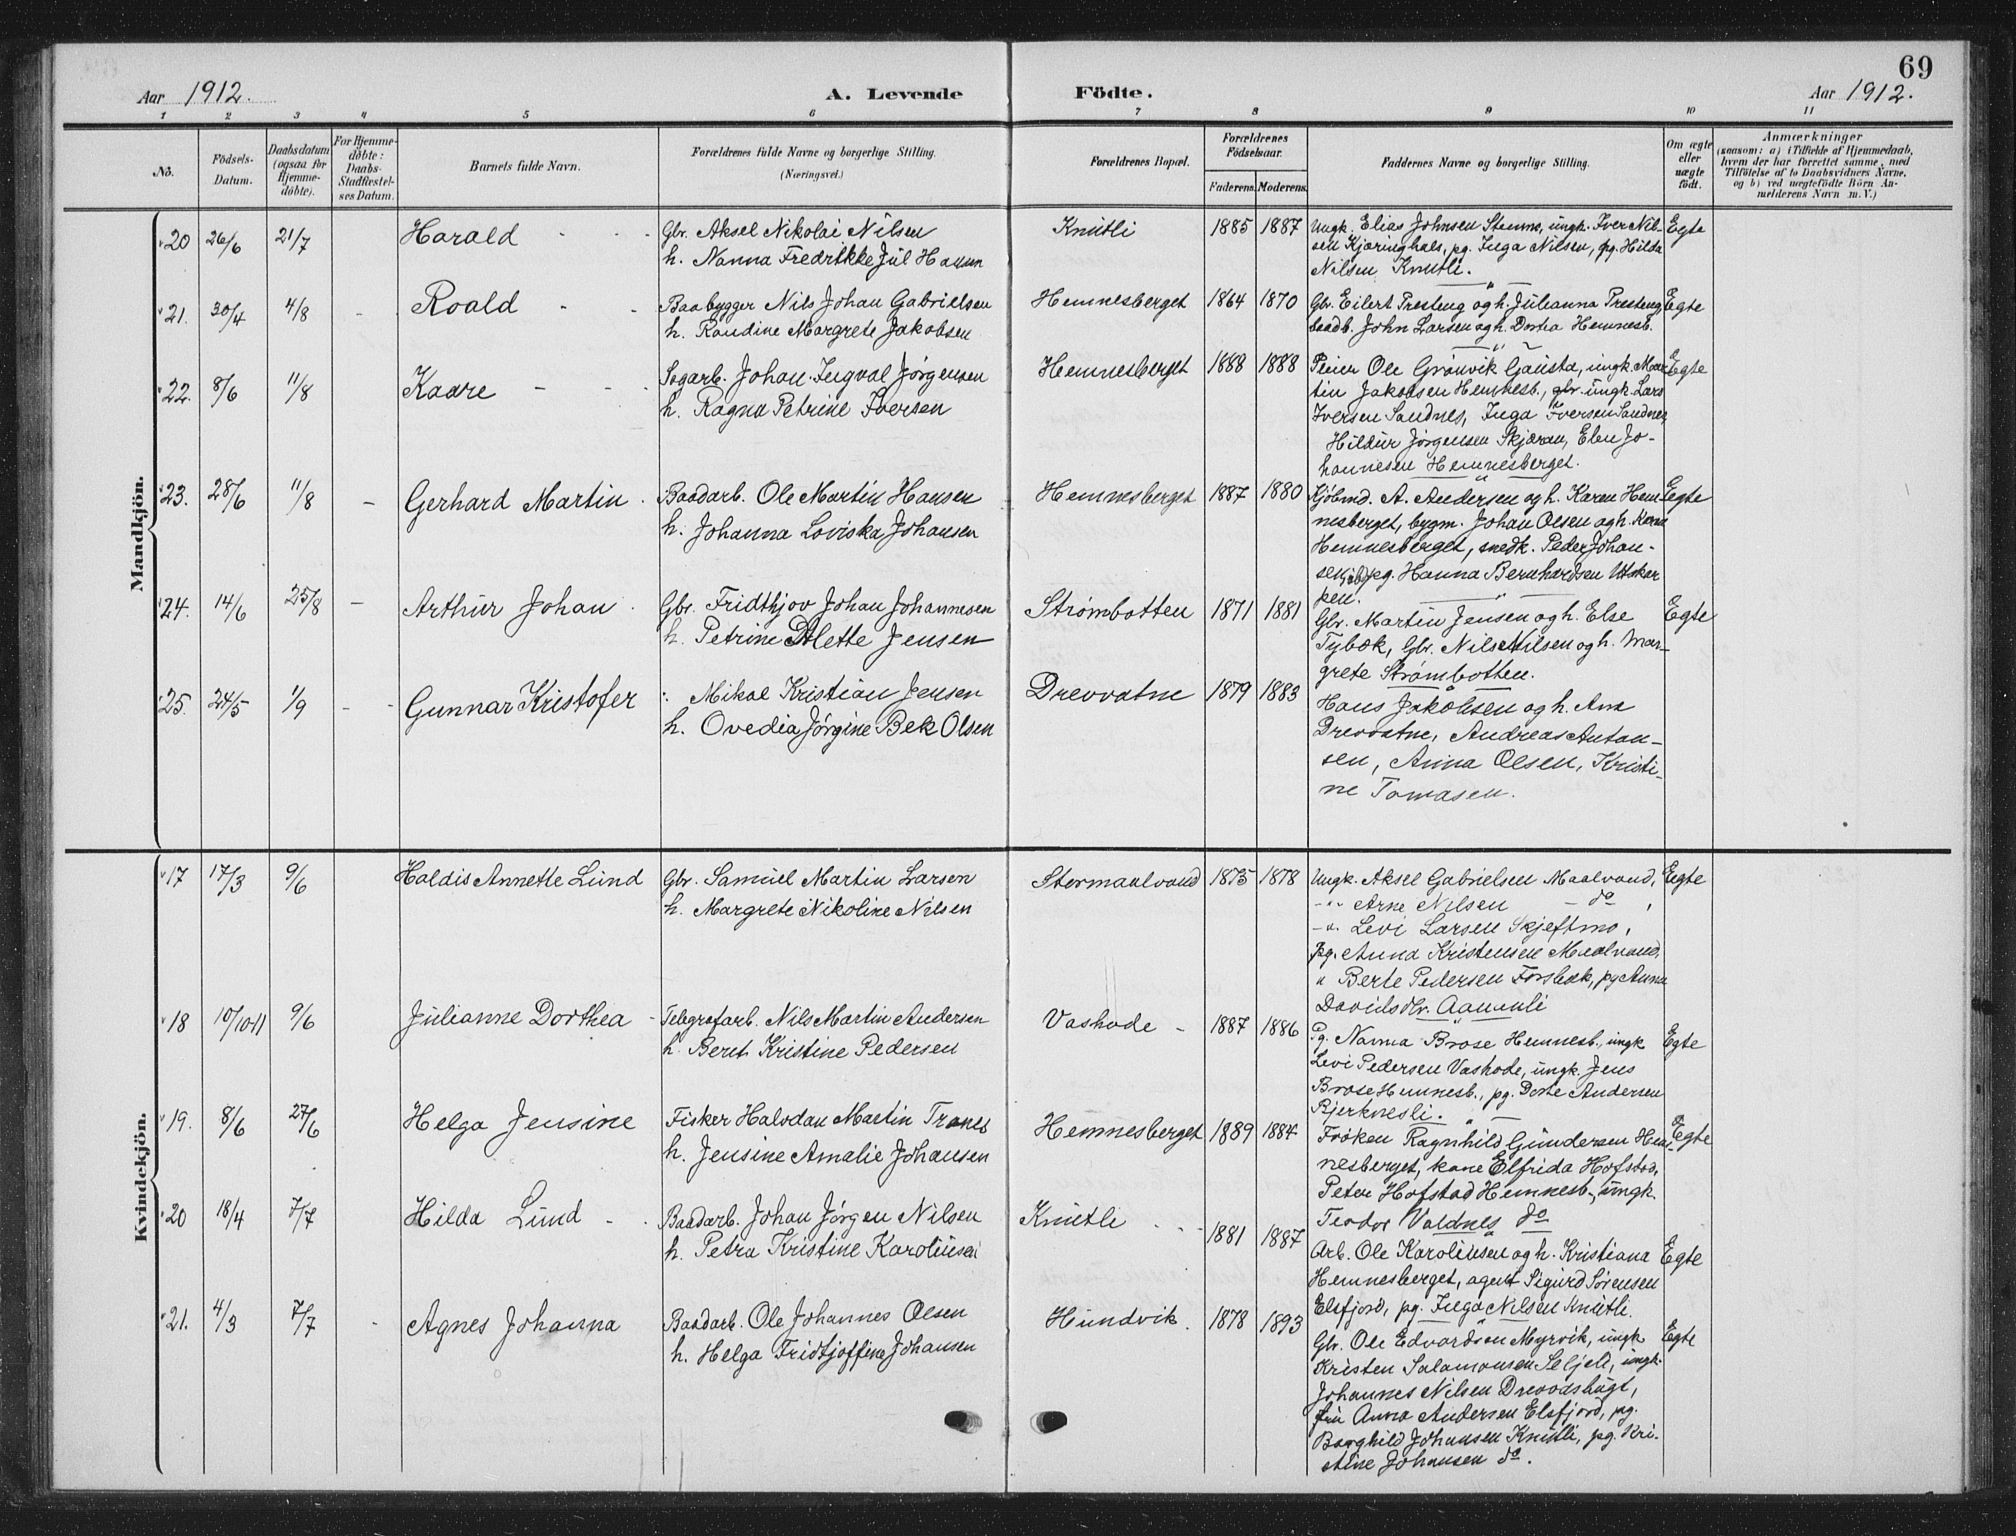 69
Aar 1912. A. Levende Födte. Aar 1912.
1 2 3 4 5 6 7 8 9 10 11
No.
Födsels-
Datum.
Daabsdatum
(ogsaa for
Hjemme-
döbte).
For Hjemme-
döbte:
Daabs-
Stadfestel-
ses Datum.
Barnets fulde Navn.
Forældrenes fulde Navne og borgerlige Stilling.
(Næringsvei.)
Forældrenes Bopæl.
Forældrenes
Födselsaar.
Faderens. Moderens.
Faddernes Navne og borgerlige Stilling.
Om ægte
eller
uægte
födt.
Anmærkninger
(saasom: a) i Tilfælde af Hjemmedaab,
hvem der har forrettet samme, med
Tilföielse af to Daabsvidners Navne,
og b) ved uægtefödte Börn An-
melderens Navn m. V.)
Mandkjön.
20 26/6 21/7 Harald Gbr. Aksel Nikolai Nilsen
h. Nanna Fredrikke Jul Hansen
Knutli 1885 1887
Ungk. Elias Johnsen Stemne, ungk. Iver Nil-
sen Kjæringhals, pg. Inga Nilsen, pg. Hilda
Nilsen Knutli.
Egte
21. 30/4 4/8 - Roald Baabygger Nils Johan Gabrielsen
h. Randine Margrete Jakobsen
Hemnesberget 1864 1870
Gbr. Eilert Presteng og h. Julianna Presteng
baadb. John Larsen og h. Dortea Hemnesb.
Egte
22. 8/6 11/8 Kaare Sagarb. Johan Ingval Jørgensen
h. Ragna Petrine Iversen
Hemnesberget 1888 1888
Peier Ole Grønvik Gausta, ungk. Mar-
tin Jakobsen Hemnesb., gbr. ungk. Lars
Iversen Sandnes, Inga Iversen Sandnes,
Hildur Jørgensen Skjæran, Elen Jo-
hannesen Hemnesberget.
Egte
23. 28/6 11/8 - Gerhard Martin Baadarb. Ole Martin Hansen
h. Johanna Loviska Johansen
Hemnesberget 1887 1880
Kjøbmd. A. Andersen og h. Karen Hem
nesberget, bygm. Johan Olsen og h. Kana
Hemnesberget, snedk. Peder Johan-
sen, pg. Hanna Bernhardsen Utskar
pen.
Egte
24. 14/6 25/8 - Arthur Johan Gbr. Fridthjov Johan Johannesen
h. Petrine Mette Jensen
Strømbotten 1871 1881
Gbr. Martin Jensen og h. Else
Tybæk, Gbr. Nils Nilsen og h. Mar-
grete Strømbotten.
Egte
25. 24/5 1/9 - Gunnar Kristofer Mikal Kristian Jensen
h. Ovedia Jørgine Bek Olsen
Drevvatne 1879 1883
Hans Jakobsen og h. Ane
Drevvatne, Andreas Antan-
sen, Anna Olsen, Kristi-
ne Tomasen.
Kvindekjön.
17 17/3 9/6 Haldis Annette Lund Gbr. Samuel Martin Larsen
h. Margrete Nikoline Nilsen
Stormaalvand 1875 1878
Ungk. Aksel Gabrielsen Maalvand,
-"- Arne Nilsen - do,
-"- Levi Larsen Skjeftmo,
pg. Anna Kristensen Maalvand,
" Berte Pedersen Forsbæk, pg Anna
Davidsdtr. Aanenli
Egte
18 10/10-11 9/6 Julianne Dorthea - Telegrafarb. Nils Martin Andersen
h. Beret Kristine Pedersen
Vashode - 1887 1886
Pg. Nanna Brose Hemnesb., ungk
Levi Pedersen Vashode, ungk. Jens
Brose Hemnesb., pg. Dorte Andersen
Bjerknesli.
Egte
19. 8/6 27/6 Helga Jensine Fisker Halvdan Martin Tranes
h. Jensine Amalie Johansen
Hemnesberget 1889 1884
Frøken Ragnhild Gundersen Hem-
nesberget, kone Elfrida Hofstad,
Peter Hofstad Hemnesb., ungk.
Teodor Valdnes do
Egte
20 18/4 7/7 Hilda Lund Baadarb. Johan Jørgen Nilsen
h. Petra Kristine Karoliusen
Knutli 1881 1887
Arb. Ole Karoliusen og h. Kristiana
Hemnesberget, agent Sigurd Sørensen
Elsfjord, pg. Inga Nilsen Knutli.
Egte
21. 4/3 7/7 Agnes Johanna Baadarb. Ole Johannes Olsen
h. Helga Fridtjoffine Johansen
Hundvik. 1878 1893
Gbr. Ole Edvardsen Myrvik, ungk
Kristen Salamonsen Seljeli, ungk.
Johannes Nilsen Drevvdshugt,
fru Anna Andersen Elsfjord, pg.
Borghild Johansen Knutli, pg. Kri-
stine Johansen do.
Egte